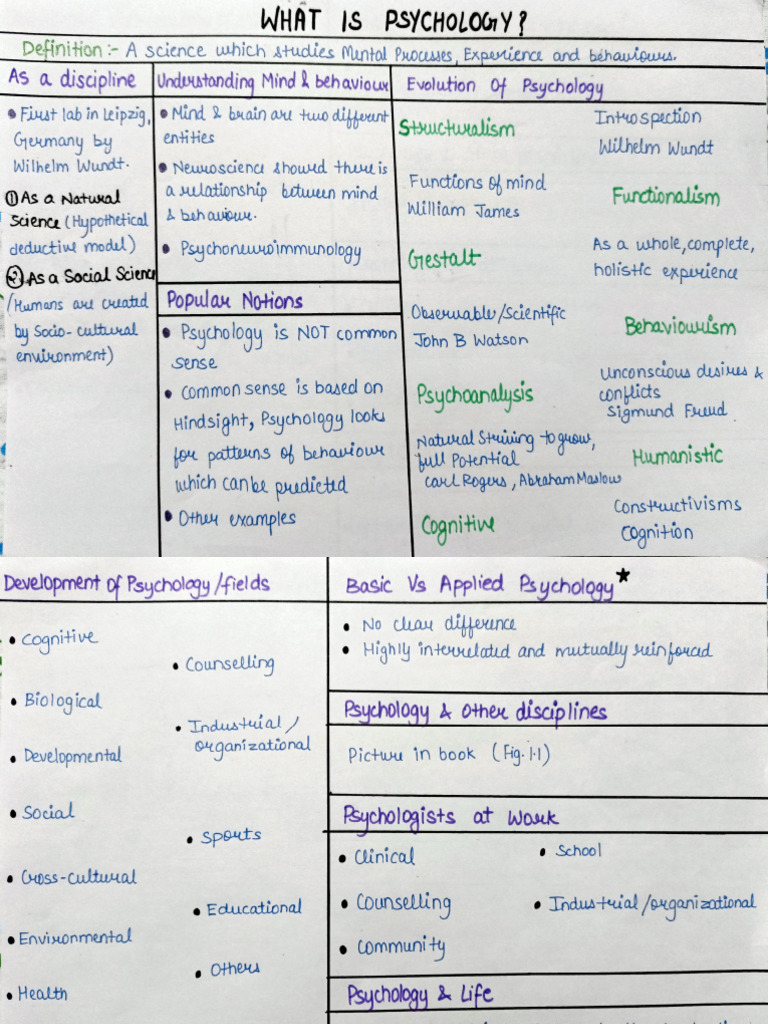 WHAT IS PSYCHOLOGY?
Definition:- A science which studies Mental Processes, Experience and behaviours.
As a discipline
• First lab in Leipzig,
Germany by
Wilhelm Wundt.
① As a Natural
Science (Hypothetical
deductive model)
② As a Social Science
(Humans are created
by Socio-cultural
environment)
Understanding Mind & behaviour
• Mind & brain are two different
entities
• Neuroscience showed there is
a relationship between mind
& behaviour.
• Psychoneuroimmunology
Popular Notions
• Psychology is NOT common
sense
• Common sense is based on
Hindsight, Psychology looks
for patterns of behaviour
which can be predicted
• Other examples
Evolution Of Psychology
Structuralism
Introspection
Wilhelm Wundt
Functions of mind
William James
Functionalism
Gestalt
As a whole, complete,
holistic experience
Observable/Scientific
John B Watson
Behaviourism
Psychoanalysis
Unconscious desires &
conflicts
Sigmund Freud
Natural Striving to grow,
full Potential
Carl Rogers, Abraham Maslow
Humanistic
Cognitive
Constructivisms
Cognition
Development of Psychology/fields
• Cognitive
• Counselling
• Biological
• Industrial/
organizational
• Developmental
• Social
• Sports
• Cross-cultural
• Educational
• Environmental
• Others
• Health
Basic Vs Applied Psychology★
• No clear difference
• Highly interrelated and mutually reinforced
Psychology & Other disciplines
Picture in book (Fig. 1.1)
Psychologists at Work
• Clinical
• School
• Counselling
• Industrial/organizational
• Community
Psychology & Life